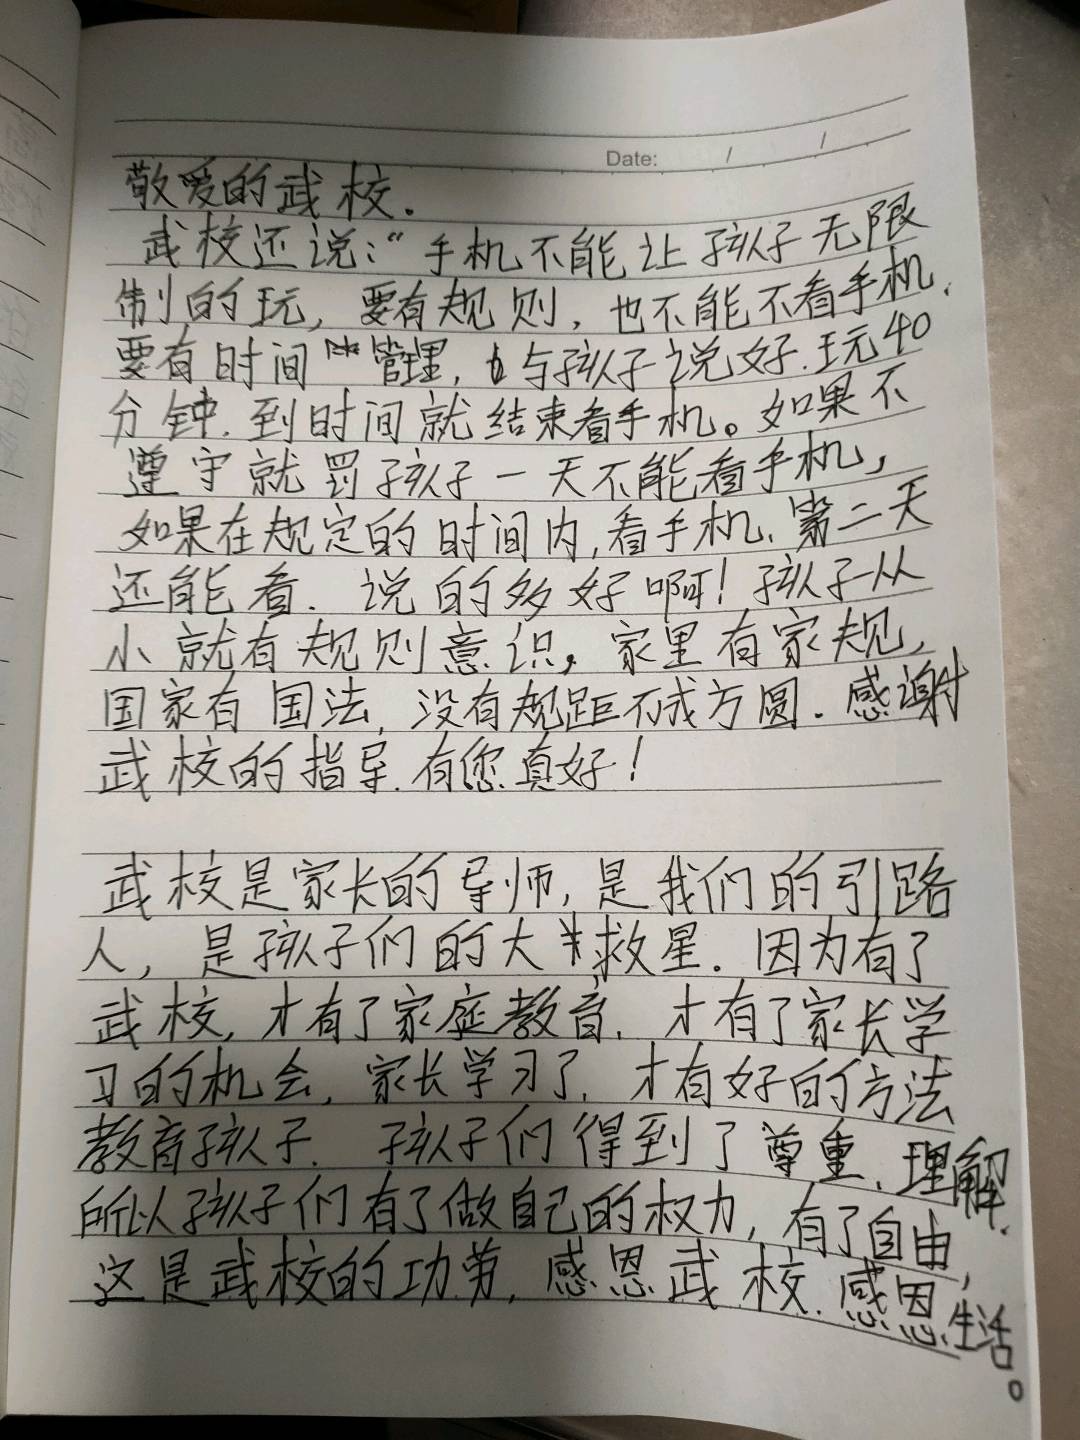 Date: / /
敬爱的武校.
武校还说:“手机不能让孩子无限
制的玩,要有规则,也不能不看手机.
要有时间管理,与孩子说好.玩40
分钟.到时间就结束看手机。如果不
遵守就罚孩子一天不能看手机,
如果在规定的时间内,看手机.第二天
还能看.说的多好啊!孩子从
小就有规则意识,家里有家规,
国家有国法,没有规距不成方圆.感谢
武校的指导.有您真好!
武校是家长的导师,是我们的引路
人,是孩子们的大救星.因为有了
武校,才有了家庭教育,才有了家长学
习的机会,家长学习了,才有好的方法
教育孩子.孩子们得到了尊重.理解.
所以孩子们有了做自己的权力,有了自由,
这是武校的功劳,感恩武校.感恩生活。